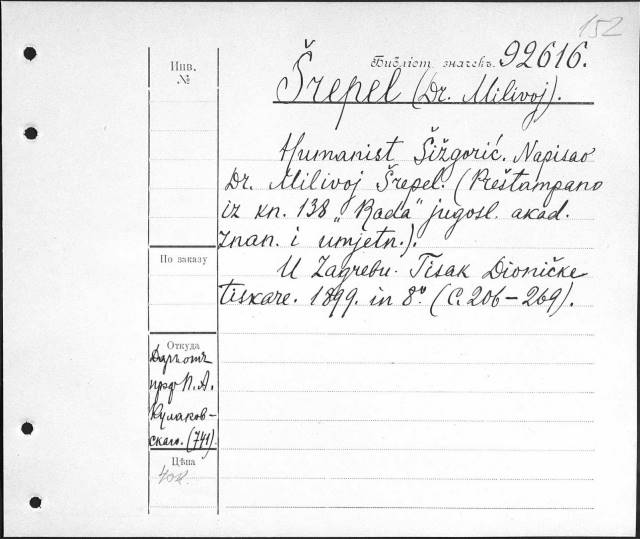 152
Инв.
№
Библіот. значекъ. 92616.
Šrepel (Dr. Milivoj).
Humanist Šižgorić. Napisao
Dr. Milivoj Šrepel. (Preštampano
iz kn. 138 „Rada" jugosl. akad.
znan. i umjetn.).
U Zagrebu. Tisak Dioničke
tiskare. 1899. in 8º (C. 206–269).
По заказу
Откуда
Даръ отъ
проф. П. А.
Кулаков-
скаго. (741).
Цѣна
40 к.